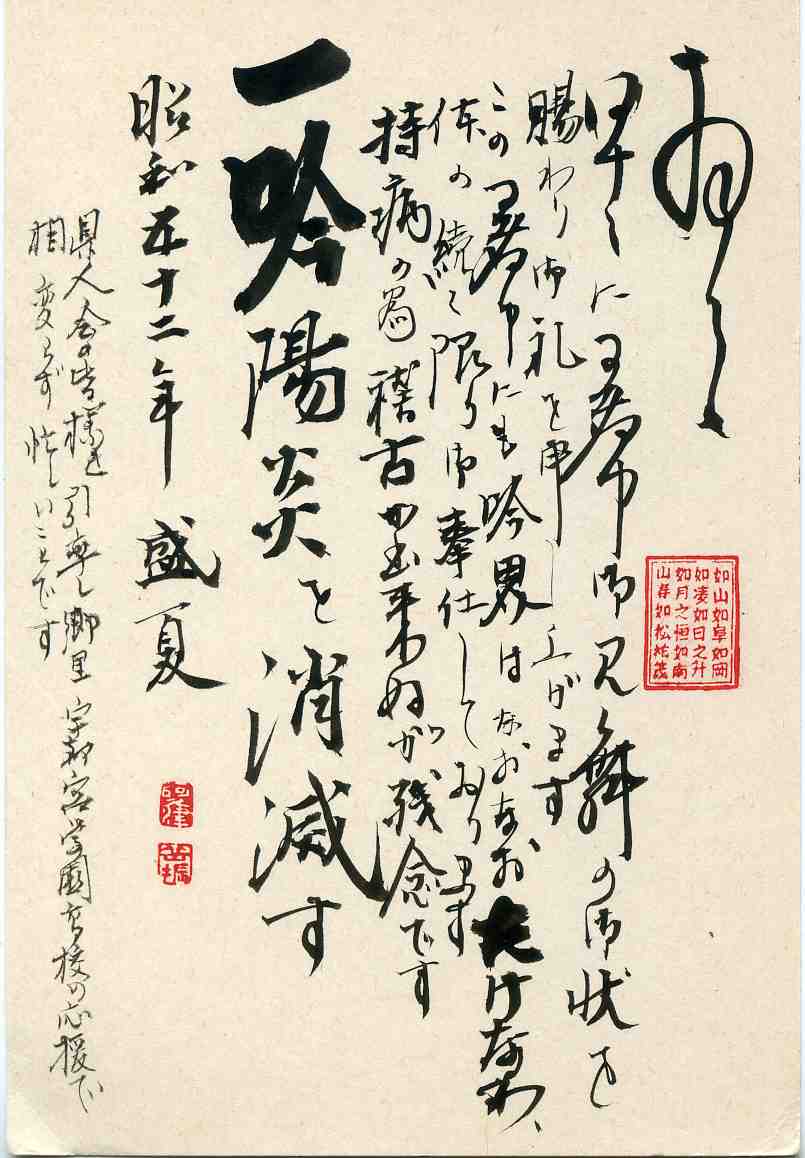 早々に暑中御見舞の御状を
賜わり御礼を申し上げます
この暑中にも吟界はなおなおたけなわ、
体の続く限り御奉仕しております
持病の為稽古出来ぬが残念です
一吟陽炎を消滅す
昭和五十二年 盛夏
県人会の皆様を引率し郷里 宇都宮学園高校の応援で
相変らず忙しいことです
如山如阜如岡
如凌如日之升
如月之恒如南
山寿如松柏茂